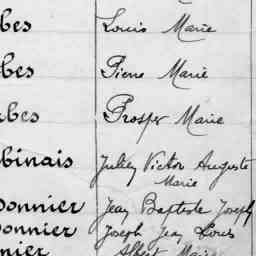 bes Louis Marie
bes Pierre Marie
bes Prosper Marie
binais Julien Victor Auguste
Marie
onnier Jean Baptiste Joseph
onnier Joseph Jean Louis
nier Albert Marie